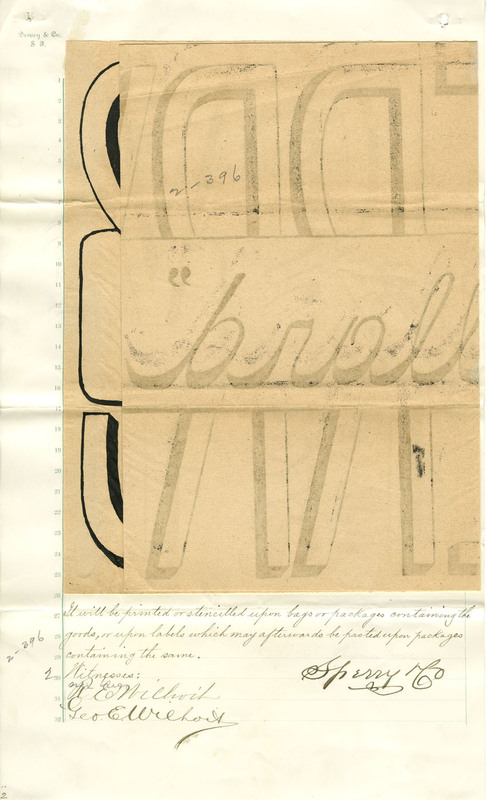 Dewey & Co.
S. F.
1
2
3
4
5
6
7
8
9
10
11
12
13
14
15
16
17
18
19
20
21
22
23
24
25
26
27
28
29
30
31
32
2-396
"
It will be printed or stencilled upon bags or packages containing the
goods, or upon labels which may afterwards be pasted upon packages
containing the same.
2-396
2 Witnesses:
E Wilhoit
Geo E Wilhoit
Sperry & Co
2